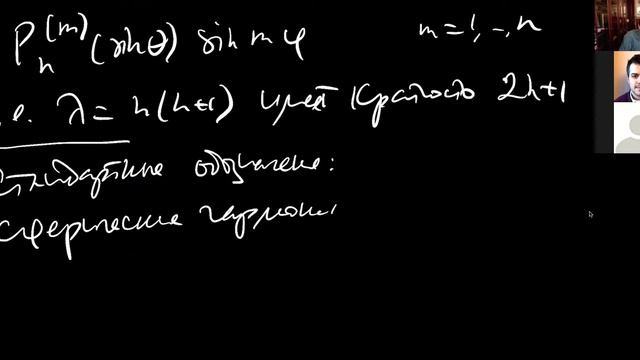 P_n^{(m)}(sin θ) sin mφ m=1,..,n
.е. λ = n(n+1) имеет кратность 2n+1
стандартное обозначение:
сферические гармони